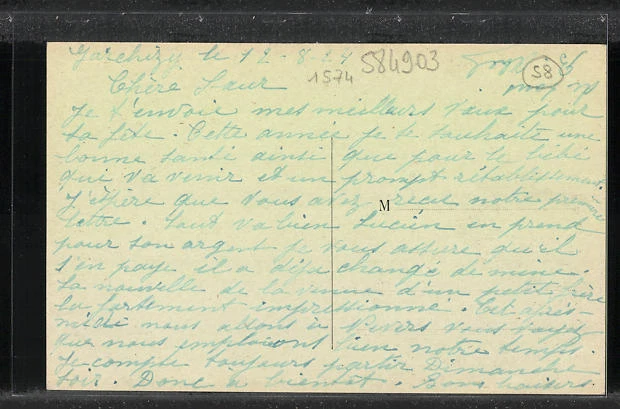 Garchizy le 12-8-24
1574
584903
58
Chère Sœur
Je t'envoie mes meilleurs vœux pour
ta fête. Cette année je te souhaite une
bonne santé ainsi que pour le bébé
qui va venir et un prompt rétablissement.
J'espère que vous avez recu notre première
lettre. Tout va bien Lucien en prend
M
pour son argent je vous assure qu'il
s'en paye il a déja changé de mine.
La nouvelle de la venue d'un petit frère
la fortement impressionné. Cet après
midi nous allons à Nevers vous voyez
que nous employons bien notre temps.
Je compte toujours partir Dimanche
soir. Donc à bientot. Bons baisers.